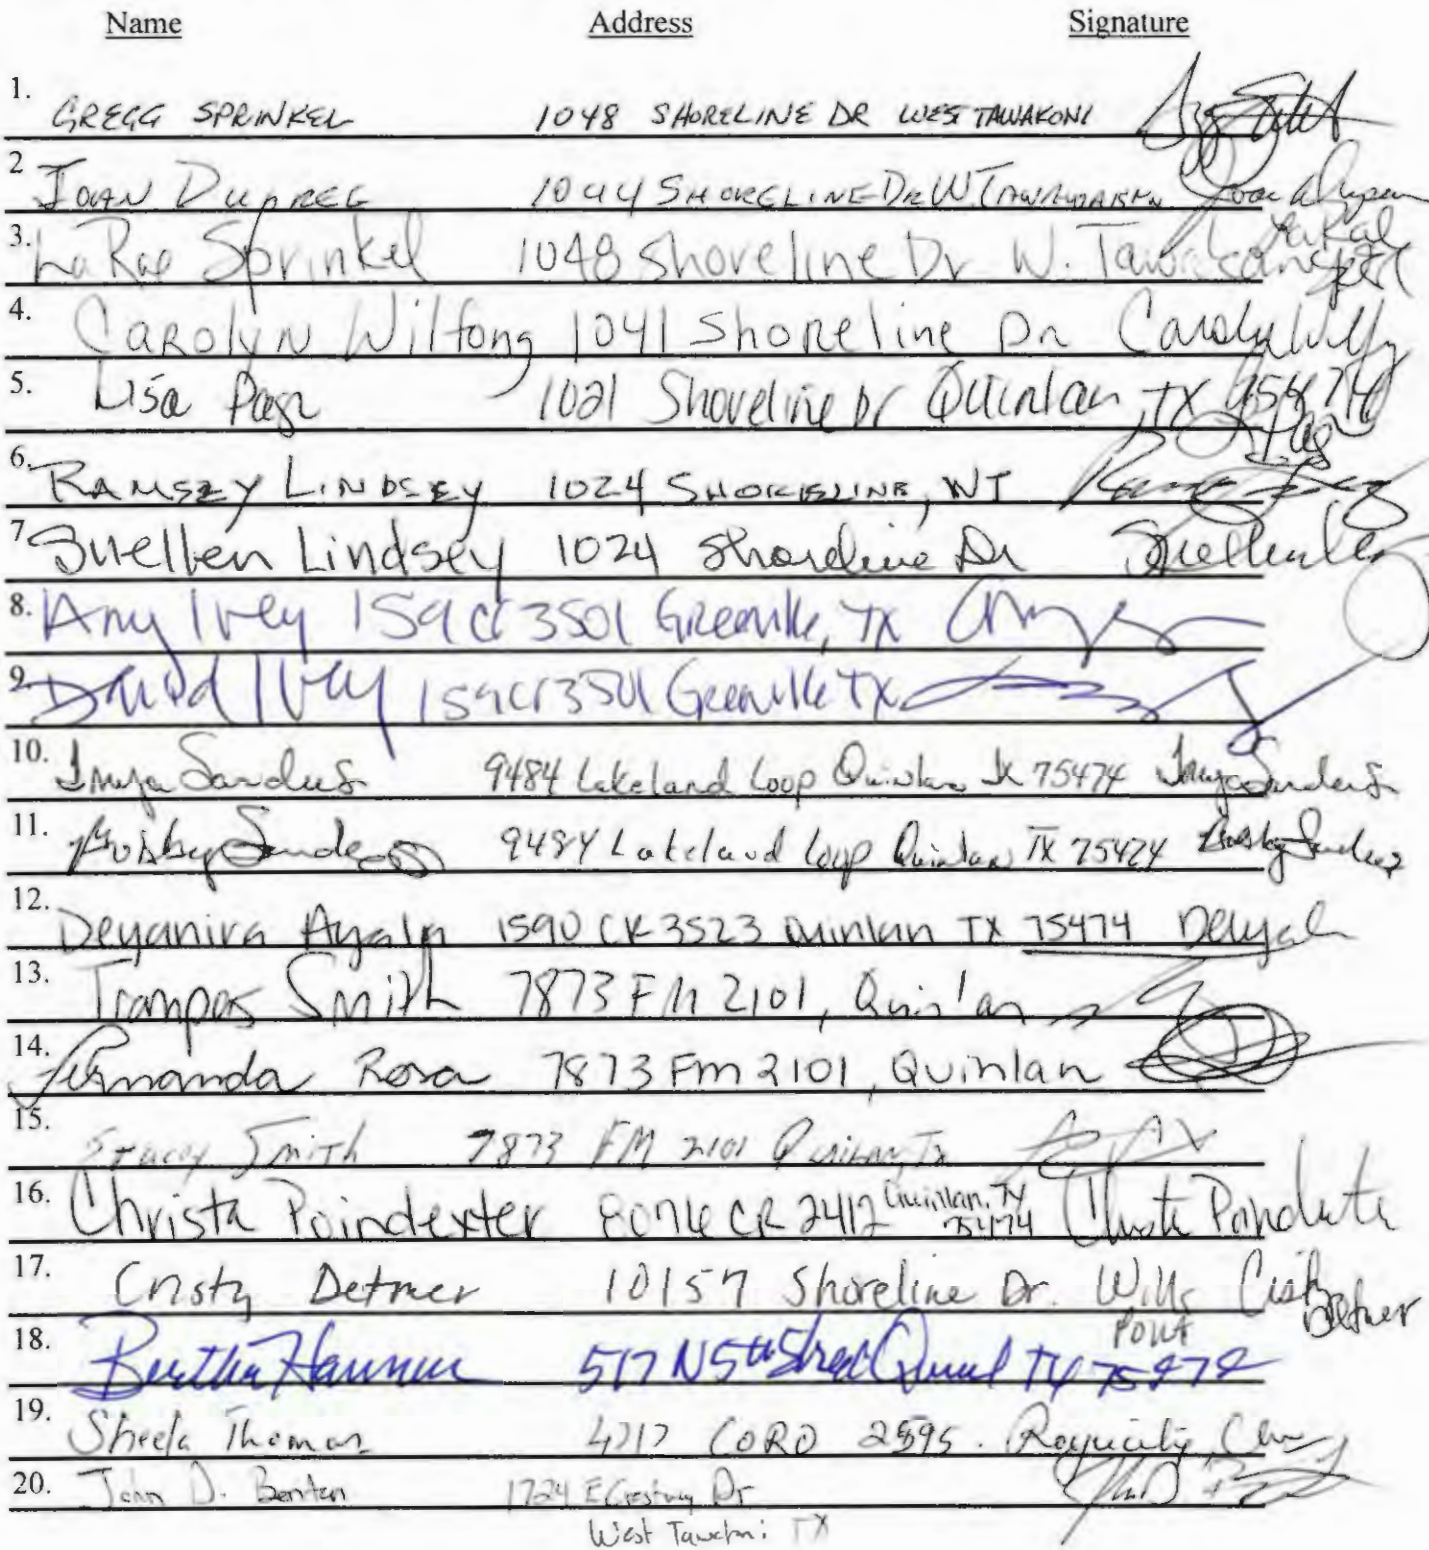 Name Address Signature
1. GREGG SPRINKEL 1048 SHORELINE DR WEST TAWAKONI
2 JOAN DUPREE 1044 SHORELINE DR W.
3. LaRae Sprinkel 1048 Shoreline Dr W. Tawakoni LaRae
4. Carolyn Wilfong 1041 Shoreline Dr
5. Lisa Page 1021 Shoreline Dr Quinlan, TX 75474
6. RAMSEY LINDSEY 1024 SHORELINE, WT
7 Suellen Lindsey 1024 Shoreline Dr
8. Amy Ivey 159 CR 3501 Greenville, TX
9. David Ivey 159 CR 3501 Greenville TX
10. Sanders 9484 Lakeland Loop Quinlan Tx 75474 Sanders
11. Bobby Sanders 9484 Lakeland Loop Quinlan TX 75474 Bobby Sanders
12. Deyanira Ayala 1590 CR 3523 Quinlan TX 75474
13. Trampas Smith 7873 FM 2101, Quinlan
14. Fernanda Rosa 7873 Fm 2101, Quinlan
15. Stacey Smith 7873 FM 2101 Quinlan Tx
16. Christa Poindexter CR 2412 Quinlan, TX 75474 Christa Poindexter
17. Cristy Detmer 10157 Shoreline Dr. Wills Point Cristy Detmer
18. Bertha 517 N 5th Street TX
19. Sheela Thomas CORD 2595.
20. John D. Benton 1724 E Dr
West Tawakoni TX